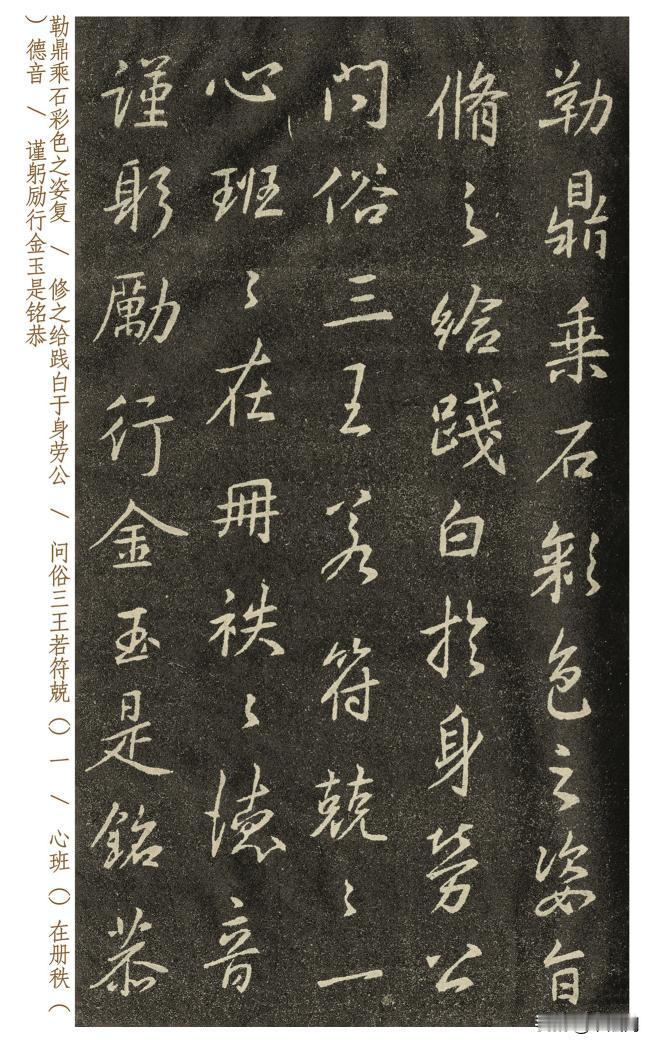 勒鼎乗石彩色之姿
脩之給踐白於身勞公
問俗三王若符兢〻一
心班〻在冊秩〻德音
謹躬勵行金玉是銘恭
勒鼎乘石彩色之姿复 / 修之给践白于身劳公 / 问俗三王若符兢（）一 / 心班（）在册秩（
）德音 / 谨躬励行金玉是铭恭